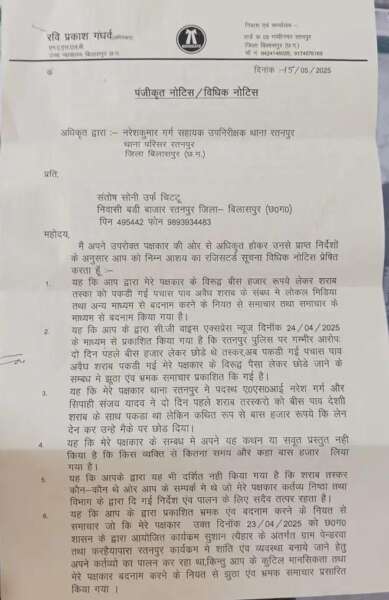 रवि प्रकाश गंधर्व(अधिवक्ता)
एम.ए.एल.एल.बी
उच्च न्यायालय बिलासपुर छ.ग.
निवास एवं कार्यालय -
वार्ड क्र 09 गांधीनगर रतनपुर
जिला बिलासपुर (छ.ग.)
दिनांक -15/05/2025
पंजीकृत नोटिस/विधिक नोटिस
अधिकृत द्वारा :- नरेशकुमार गर्ग सहायक उपनिरीक्षक थाना रतनपुर
थाना परिसर रतनपुर
जिला बिलासपुर (छ.ग.)
प्रति,
संतोष सोनी उर्फ चिटटू
निवासी बडी बाजार रतनपुर जिला– बिलासपुर (छ0ग0)
पिन 495442 फोन 9893934483
महोदय,
मै अपने उपरोक्त पक्षकार की ओर से अधिकृत होकर उनसे प्राप्त निर्देशों
के अनुसार आप को निम्न आशय का रजिसटर्ड सूचना विधिक नोटिस प्रेषित
करता हूँ :-
1. यह कि आप द्वारा मेरे पक्षकार के विरुद्व बीस हजार रूपये लेकर शराब
तस्का को पकडी गई पचास पाव अवैध शराब के संबध मे लोकल मिडिया
तथा अन्य माध्यम से बदनाम करने के नियत से समाचार तथा समाचार के
माध्यम से बदनाम किया गया है।
2. यह कि आप के द्वारा सी.जी वाइस एक्सप्रेस न्यूज दिनॉक 24/04/2025
के माध्यम से प्रकाशित किया गया है कि रतनपुर पुलिस पर गम्भीर आरोप:
दो दिन पहले बीस हजार लेकर छोडे थे तस्कर,अब पकडी गई पचास पाव
अवैध शराब पकडी गई मेरे पक्षकार के विरूद्व पैसा लेकर छोडे जाने के
सम्बध मे झूठा एंव भ्रमक समाचार प्रकाशित कि गई है।
3. यह कि मेरे पक्षकार थाना रतनपुर मे पदस्थ ए0एस0आई नरेश गर्ग और
सिपाही संजय यादव ने दो दिन पहले शराब तरस्करो को बीस पाव देशी
शराब के साथ पकडा था लेकिन कथित रूप से बास हजार रूपये कि लेन
देन कर उन्हे मौके पर छोड दिया।
4. यह कि मेरे पक्षकार के सम्बध मे अपने यह कथन या सबूत प्रस्तुत नही
किया है कि किस व्यक्ति से कितना समय और कहा बास हजार लिया
गया है।
5. यह कि आपके द्वारा यह भी दर्शित नही किया गया है कि शराब तस्कर
कौन–कौन थे ओर आप के सम्पर्क मे थे जो मेरे पक्षकार कर्तव्य निष्ठा तथा
विभाग के द्वारा दि गई निर्देश एंव पालन के लिए सदैव तत्पर रहता है।
6. यह कि आप के द्वारा प्रकाशित भ्रमक एंव बदनाम करने के नियत से
समाचार जो कि मेरे पक्षकार उक्त दिनॉक 23/04/2025 को छ0ग0
शासन के द्वारा आयोजित कार्यकम सुशान (त्यैहार के अंतर्गत ग्राम पेन्डरवा
तथा करहैयापारा रतनपुर कार्यकम मे शांति एंव व्यवस्था बनाये जाने हेतु
अपने कर्तव्यो का पालन कर रहा था,किन्तु आप के कुटिल मानसिकता तथा
मेरे पक्षकार बदनाम करने के नियत से झुठा एंव भ्रमक समाचार प्रसारित
किया गया ।